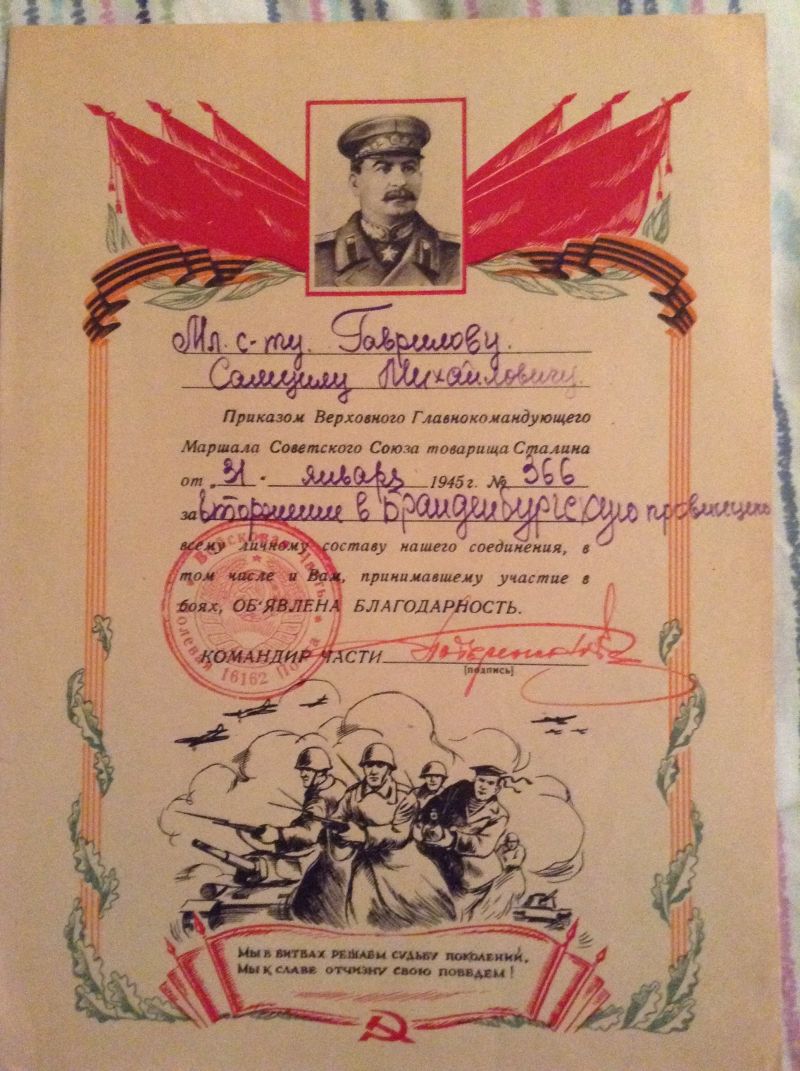 Мл. с-ту. Гаврилову.
Самуилу Михайловичу
Приказом Верховного Главнокомандующего
Маршала Советского Союза товарища Сталина
от „31" января 1945 г. № 366
за вторжение в Бранденбургскую провинцию
всему личному составу нашего соединения, в
том числе и Вам, принимавшему участие в
боях, ОБ'ЯВЛЕНА БЛАГОДАРНОСТЬ.
КОМАНДИР ЧАСТИ
[подпись]
Войсковая Часть
Полевая Почта
16162
Мы в битвах решаем судьбу поколений,
Мы к славе отчизну свою поведем!